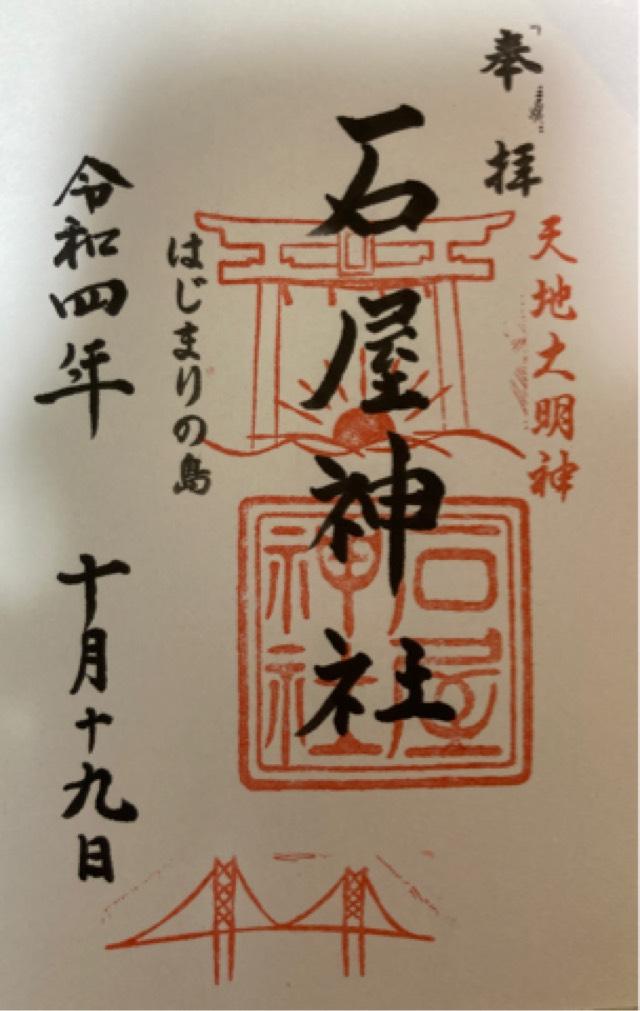 奉拝
天地大明神
石屋神社
石屋神社
はじまりの島
令和四年 十月十九日